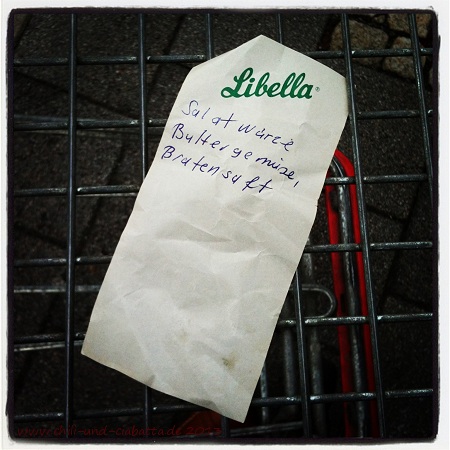 Libella®
Salat würze
Buttergemüse,
Bratensaft